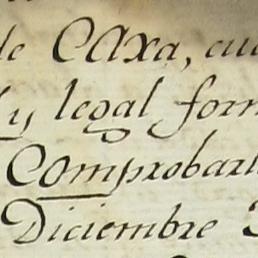 de Caxa, cu
y legal form
Comprobarl
Diciembre